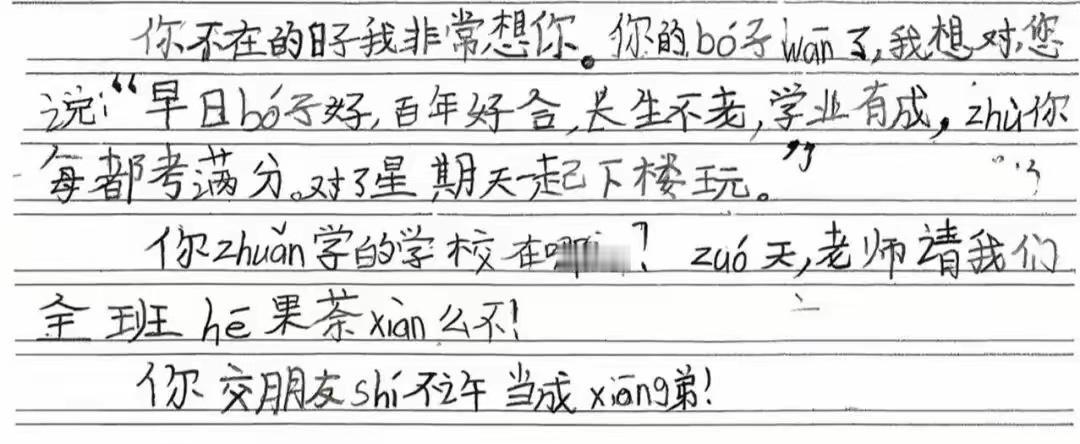 你不在的日子我非常想你。你的bó子wān了,我想对您
说:“早日bó子好,百年好合,长生不老,学业有成,zhù你
每都考满分。对了星期天一起下楼玩。”
你zhuǎn学的学校在哪 ? zuó天,老师请我们
全班hē果茶xiàn么不!
你交朋友shí不许当成xiōng弟!